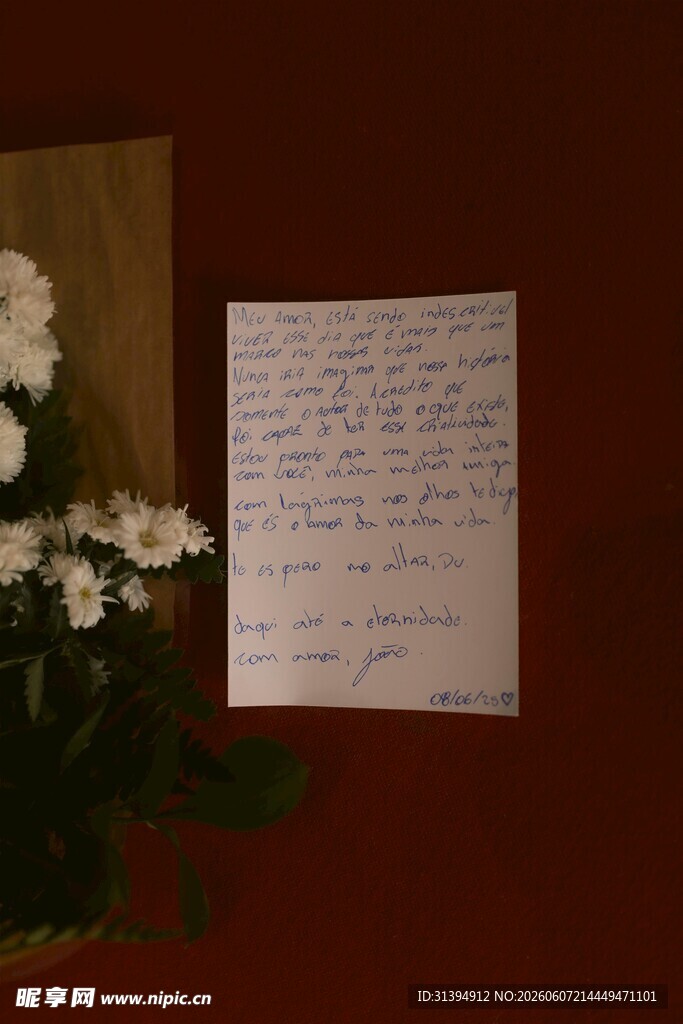 MEU AMOR, ESTÁ SENDO INDESCRITIVEL
VIVER ESSE DIA QUE É MAIS QUE UM
MARCO NAS NOSSAS VIDAS.
NUNCA IRIA IMAGINAR QUE NOSSA HISTÓRIA
SERIA COMO FOI. ACREDITO QUE
SOMENTE O AUTOR DE TUDO O QUE EXISTE,
FOI CAPAZ DE TER ESSA CRIATIVIDADE.
ESTOU PRONTO PARA UMA VIDA INTEIRA
COM VOCÊ, MINHA MELHOR AMIGA
COM LÁGRIMAS NOS OLHOS TE DIGO
QUE ÉS O AMOR DA MINHA VIDA.
TE ESPERO NO ALTAR, DU.
DAQUI ATÉ A ETERNIDADE.
COM AMOR, JOÃO.
08/06/25♡
昵享网 www.nipic.cn
ID:31394912 NO:20260607214449471101